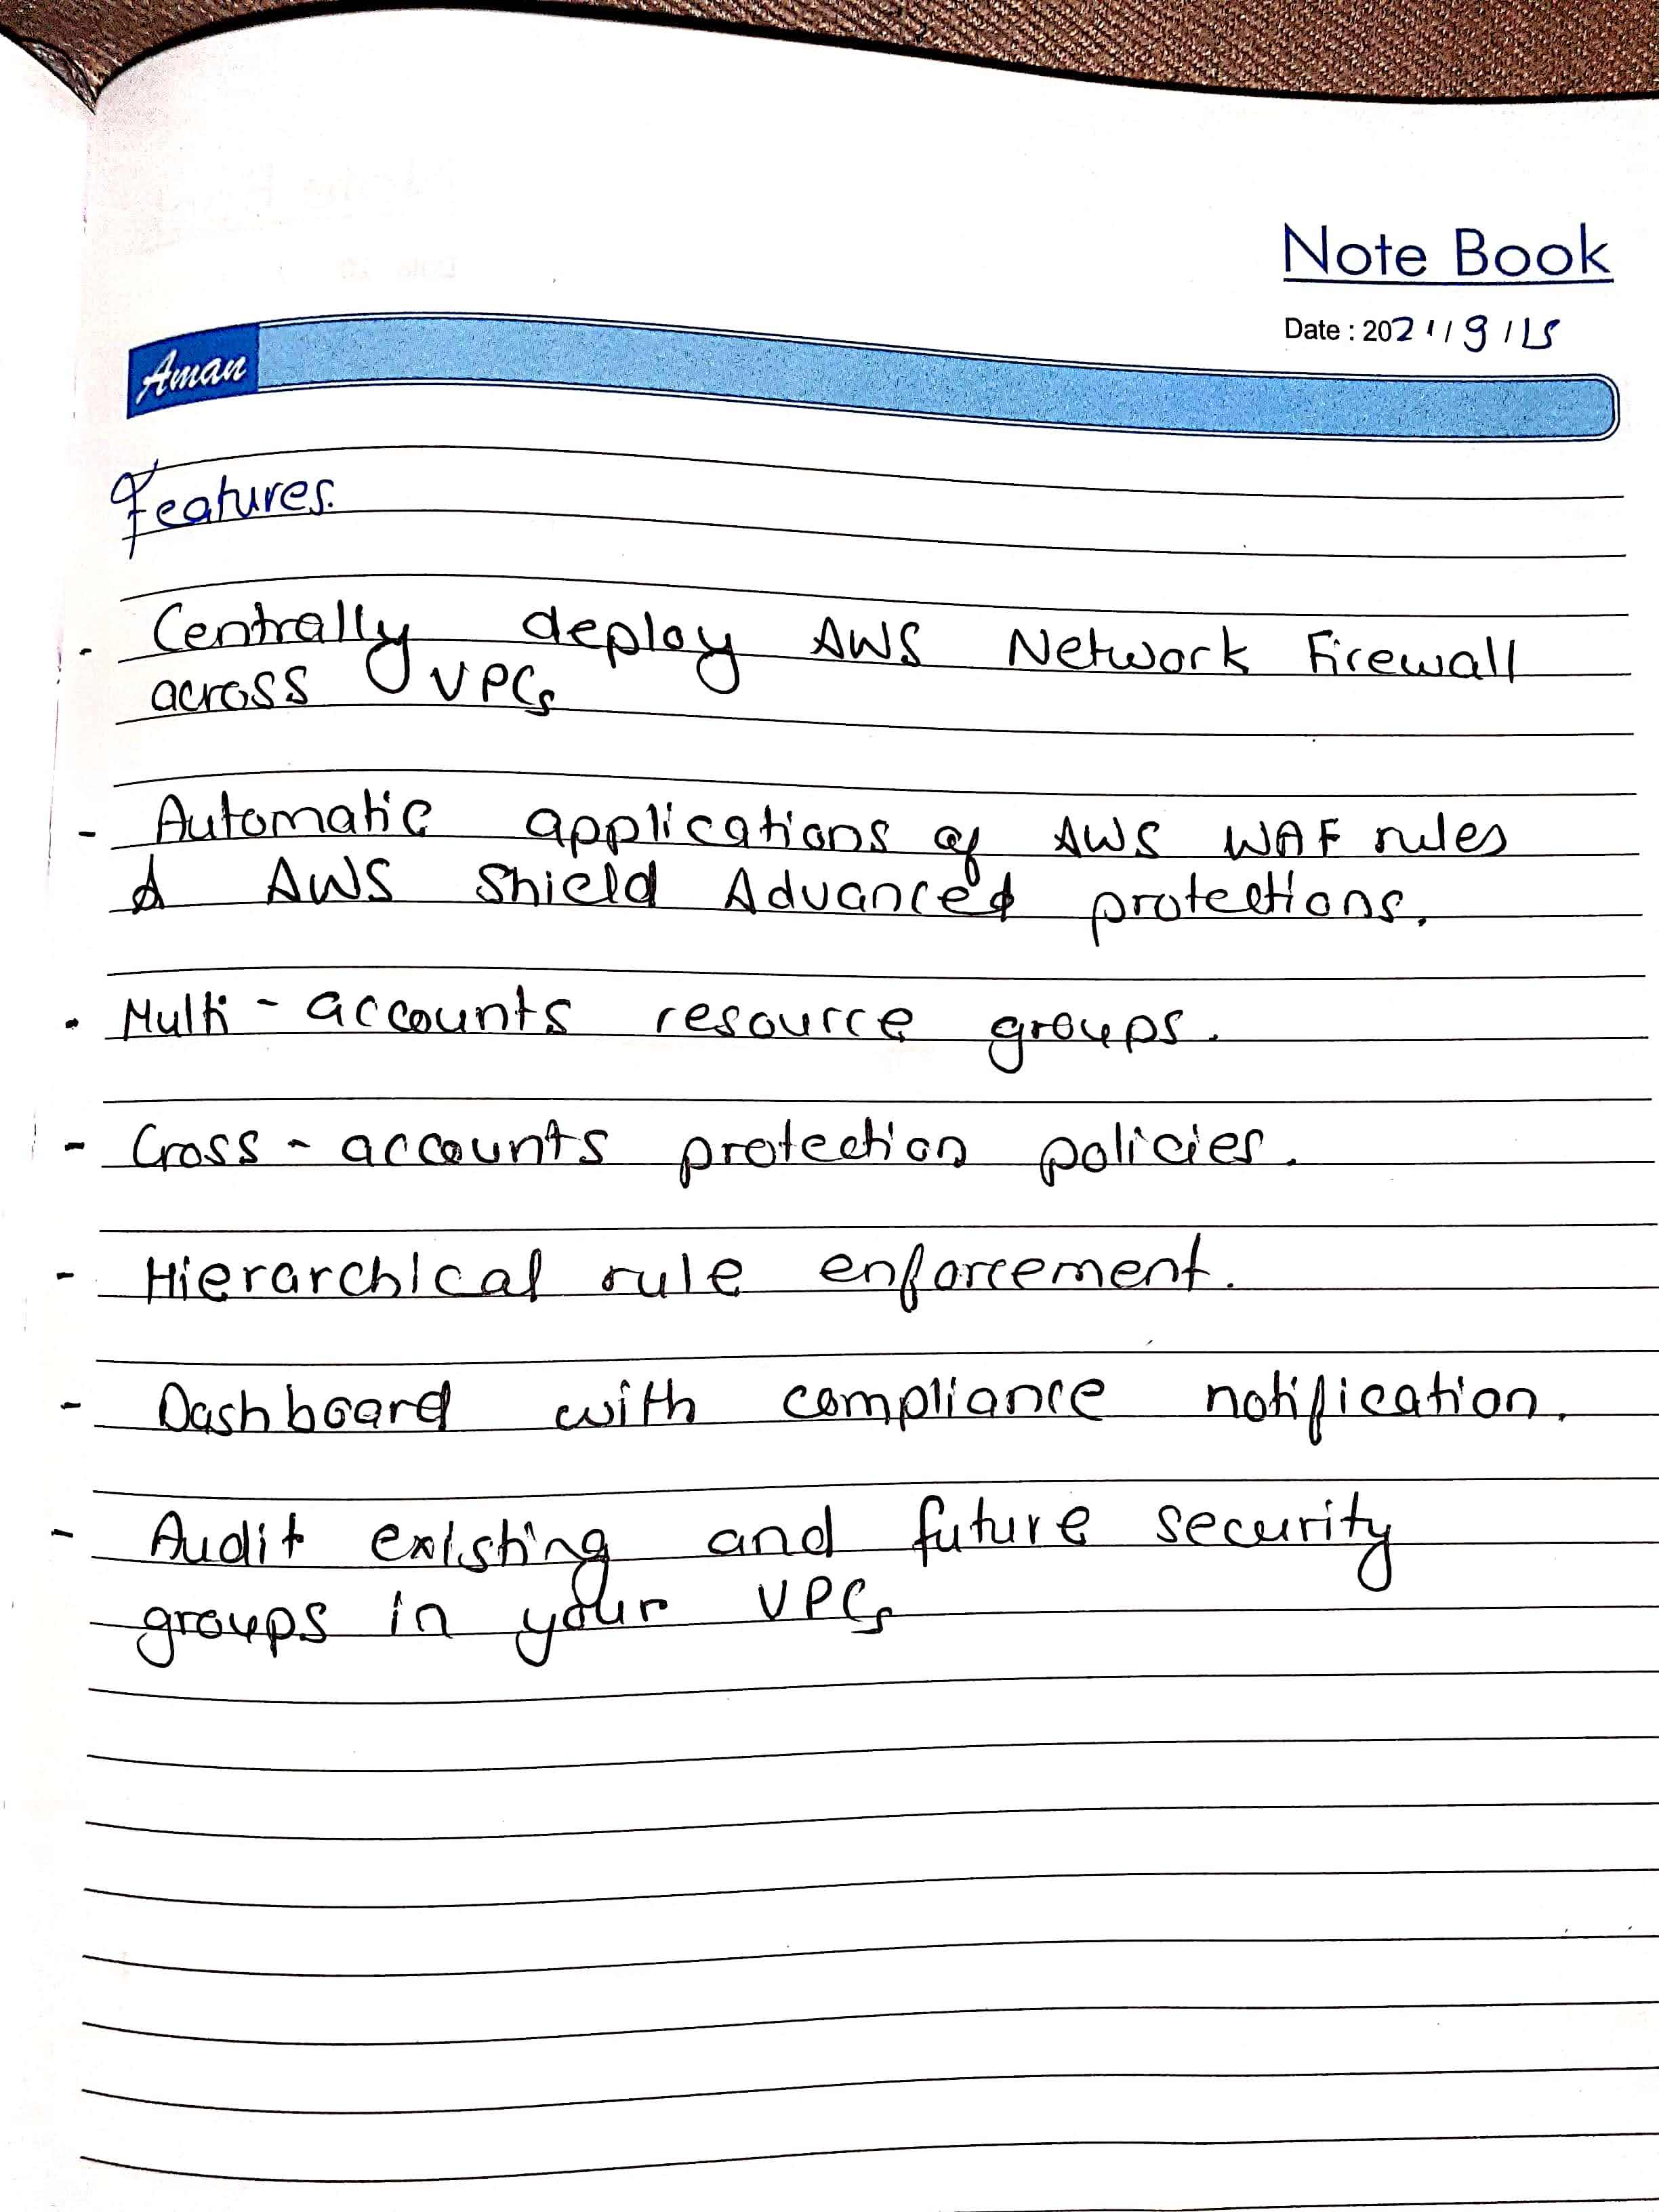 Note Book
Date : 2021/9/15
Aman
Features.
- Centrally deploy AWS Network Firewall
across VPCs
- Automatic applications of AWS WAF rules
& AWS Shield Advanced protections.
- Multi - accounts resource groups.
- Cross - accounts protection policies.
- Hierarchical rule enforcement.
- Dashboard with compliance notification.
- Audit existing and future security
groups in your VPCs